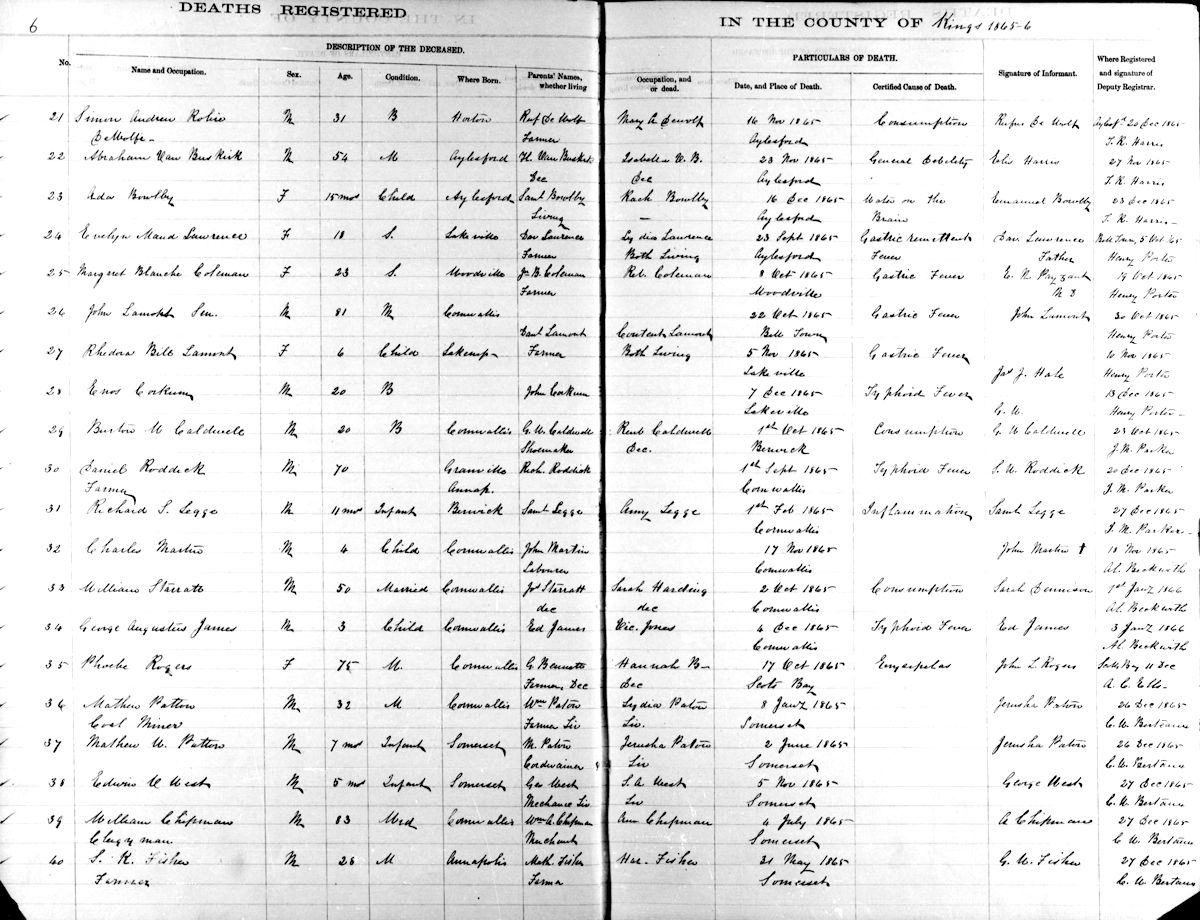 6
DEATHS REGISTERED IN THE COUNTY OF Kings 1865-6
DESCRIPTION OF THE DECEASED. PARTICULARS OF DEATH.
No. Name and Occupation. Sex. Age. Condition. Where Born. Parents' Names, whether living Occupation, and or dead. Date, and Place of Death. Certified Cause of Death. Signature of Informant. Where Registered and signature of Deputy Registrar.
21 Simon Andrew Robie M 31 B Horton Ruf De Wolf Mary A Dewolf 16 Nov 1865 Consumption Rufus De Wolf 20 Dec 1865
DeWolfe Farmer Aylesford T. R. Harris
22 Abraham Van Buskirk M 54 M Aylesford H. Van Buskirk Isabella V. B. 23 Nov 1865 General Debility Harris 27 Nov 1865
Dec Dec Aylesford T. R. Harris
23 Ada Bowlby F 15 mos Child Aylesford Saml Bowlby Rach Bowlby 16 Dec 1865 Water on the Emanuel Bowlby 23 Dec 1865
Living — Aylesford Brain T. R. Harris
24 Evelyn Maud Lawrence F 18 S. Lakeville Dav Lawrence Lydia Lawrence 23 Sept 1865 Gastric remittent Dav. Lawrence Bill Town, 5 Oct '65
Farmer Both Living Aylesford Fever Father Henry Porter
25 Margaret Blanche Coleman F 23 S. Woodville Jn B. Coleman Reb. Coleman 8 Oct 1865 Gastric Fever E. N. Payzant 19 Oct 1865
Farmer Woodville M D Henry Porter
26 John Lamont Sen. M 81 M Cornwallis 22 Oct 1865 Gastric Fever John Lamont 30 Oct 1865
Danl Lamont Content Lamont Bill Town Henry Porter
27 Rhedora Bill Lamont F 6 Child Farmer Both Living 5 Nov. 1865 Gastric Fever 10 Nov 1865
Lakeville Jas J. Hale Henry Porter
28 Enos Corkum M 20 B John Corkum 7 Dec 1865 Typhoid Fever 13 Dec 1865
Lakeville G. W. Henry Porter
29 Burton W Caldwell M 20 B Cornwallis G. W. Caldwell Caldwell 1st Oct 1865 Consumption G W Caldwell 23 Oct 1865
Shoemaker Dec. Berwick J. M. Parker
30 Daniel Roddick M 70 Granville Rich. Roddick 1st Sept 1865 Typhoid Fever S. W. Roddick 20 Dec 1865
Farmer Annap. Cornwallis J. M. Parker
31 Richard S. Legge M 11 mos Infant Berwick Saml Legge Amy Legge 1st Feb 1865 Inflammation Saml Legge 27 Dec 1865
Cornwallis J. M. Parker
32 Charles Martin M 4 Child Cornwallis John Martin 17 Nov 1865 John Martin † 18 Nov 1865
Labourer Cornwallis Al. Beckwith
33 William Starratt M 50 Married Cornwallis Jos Starratt Sarah Harding 2 Oct 1865 Consumption Sarah Dennison 1st Jany 1866
dec dec Cornwallis Al. Beckwith
34 George Augustus James M 3 Child Cornwallis Ed James Vic. Jones 4 Dec 1865 Typhoid Fever Ed James 3 Jany 1866
Cornwallis Al. Beckwith
35 Phoebe Rogers F 75 M. Cornwallis G Bennett Hannah B— 17 Oct 1865 Erysipelas John L Rogers Scotts Bay 11 Dec
Farmer, Dec Dec Scots Bay A. C. Ells
36 Mathew Patton M 32 M Cornwallis Wm Paton Lydia Paton 8 Jany 1865 Jerusha Paton 26 Dec 1865
Coal Miner Farmer Liv Liv. Somerset C. W. Berteaux
37 Mathew W. Patton M 7 mos Infant Somerset M. Paton Jerusha Paton 2 June 1865 Jerusha Paton 26 Dec 1865
Cordwainer Liv Somerset C. W. Berteaux
38 Edwin C West M 5 mos Infant Somerset Geo West S. A. West 5 Nov 1865 George West 27 Dec 1865
Mechanic Liv Liv Somerset C. W. Berteaux
39 William Chipman M 83 Mrd Cornwallis Wm A. Chipman Ann Chipman 4 July 1865 A Chipman 27 Dec 1865
Clergyman Merchant Somerset C. W. Berteaux
40 S. K. Fisher M 28 M Annapolis Math Fisher Har. Fisher 31 May 1865 G. W. Fisher 27 Dec 1865
Farmer Farmer Somerset C. W. Berteaux